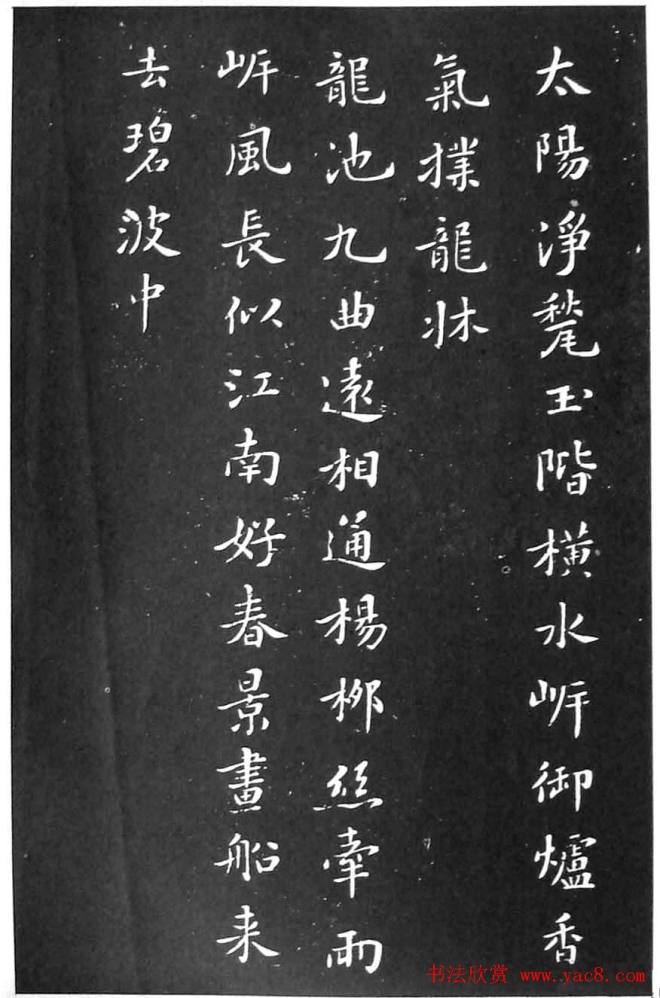 太陽淨甃玉階橫水岸御爐香
氣撲龍牀
龍池九曲遠相通楊柳絲牽兩
岸風長似江南好春景畫船来
去碧波中
书法欣赏 www.yac8.com